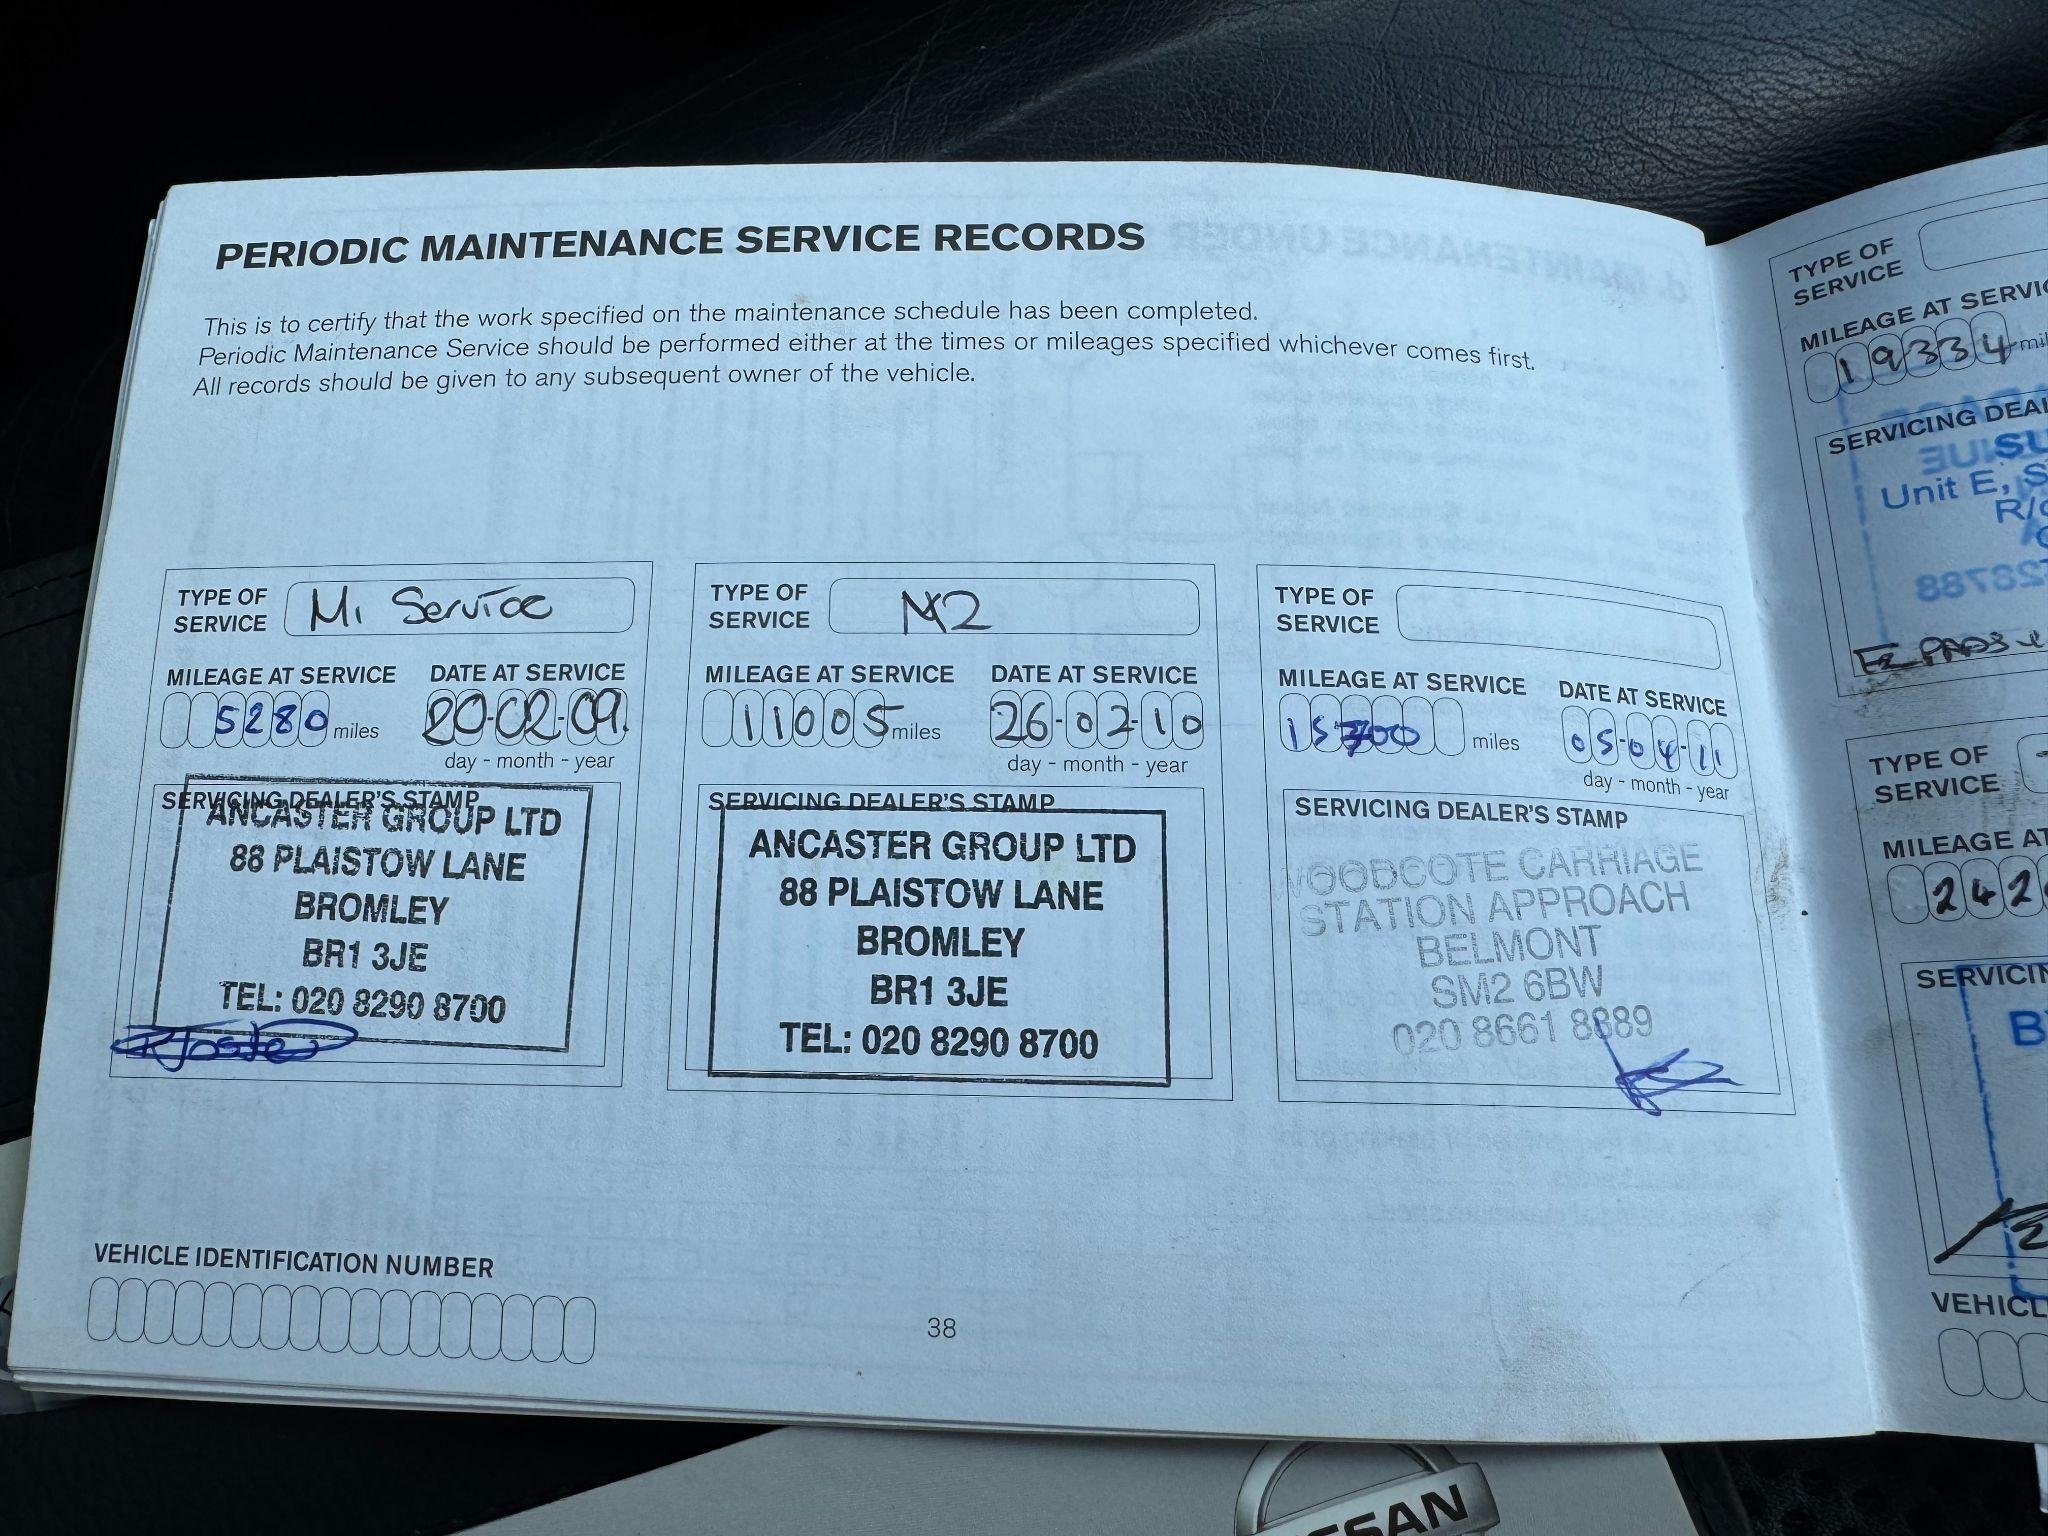 PERIODIC MAINTENANCE SERVICE RECORDS
This is to certify that the work specified on the maintenance schedule has been completed.
Periodic Maintenance Service should be performed either at the times or mileages specified whichever comes first.
All records should be given to any subsequent owner of the vehicle.
TYPE OF
SERVICE
M1 Service
MILEAGE AT SERVICE
5280 miles
DATE AT SERVICE
20-02-09
day - month - year
SERVICING DEALER'S STAMP
ANCASTER GROUP LTD
88 PLAISTOW LANE
BROMLEY
BR1 3JE
TEL: 020 8290 8700
TYPE OF
SERVICE
M2
MILEAGE AT SERVICE
11005 miles
DATE AT SERVICE
26-02-10
day - month - year
SERVICING DEALER'S STAMP
ANCASTER GROUP LTD
88 PLAISTOW LANE
BROMLEY
BR1 3JE
TEL: 020 8290 8700
TYPE OF
SERVICE
MILEAGE AT SERVICE
15700 miles
DATE AT SERVICE
05-04-11
day - month - year
SERVICING DEALER'S STAMP
WOODCOTE CARRIAGE
STATION APPROACH
BELMONT
SM2 6BW
020 8661 8889
VEHICLE IDENTIFICATION NUMBER
38
TYPE OF
SERVICE
MILEAGE AT SERVIC
19334 mil
SERVICING DEAL
SU
Unit E, S
R/o
PADS
TYPE OF
SERVICE
MILEAGE AT
242
SERVICIN
B
VEHICL
SSAN